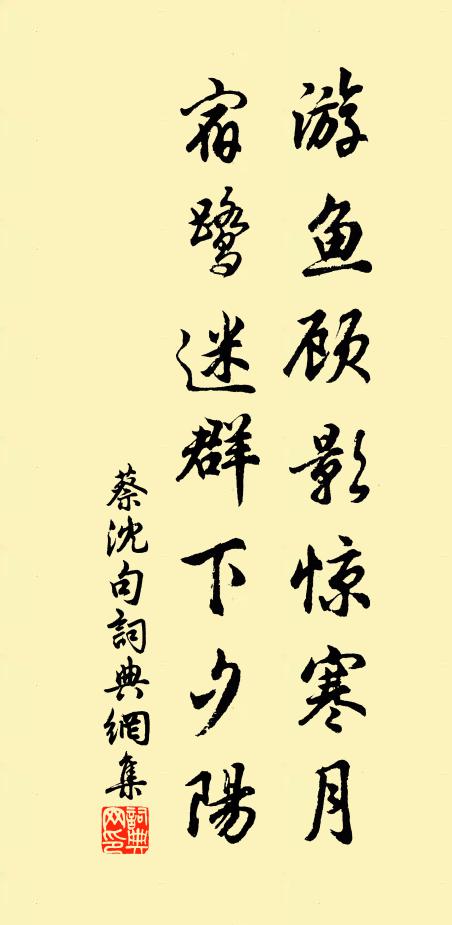 游鱼顾影惊寒月
宿鹭迷群下夕陽
蔡沈句詞典網集
詞典网印